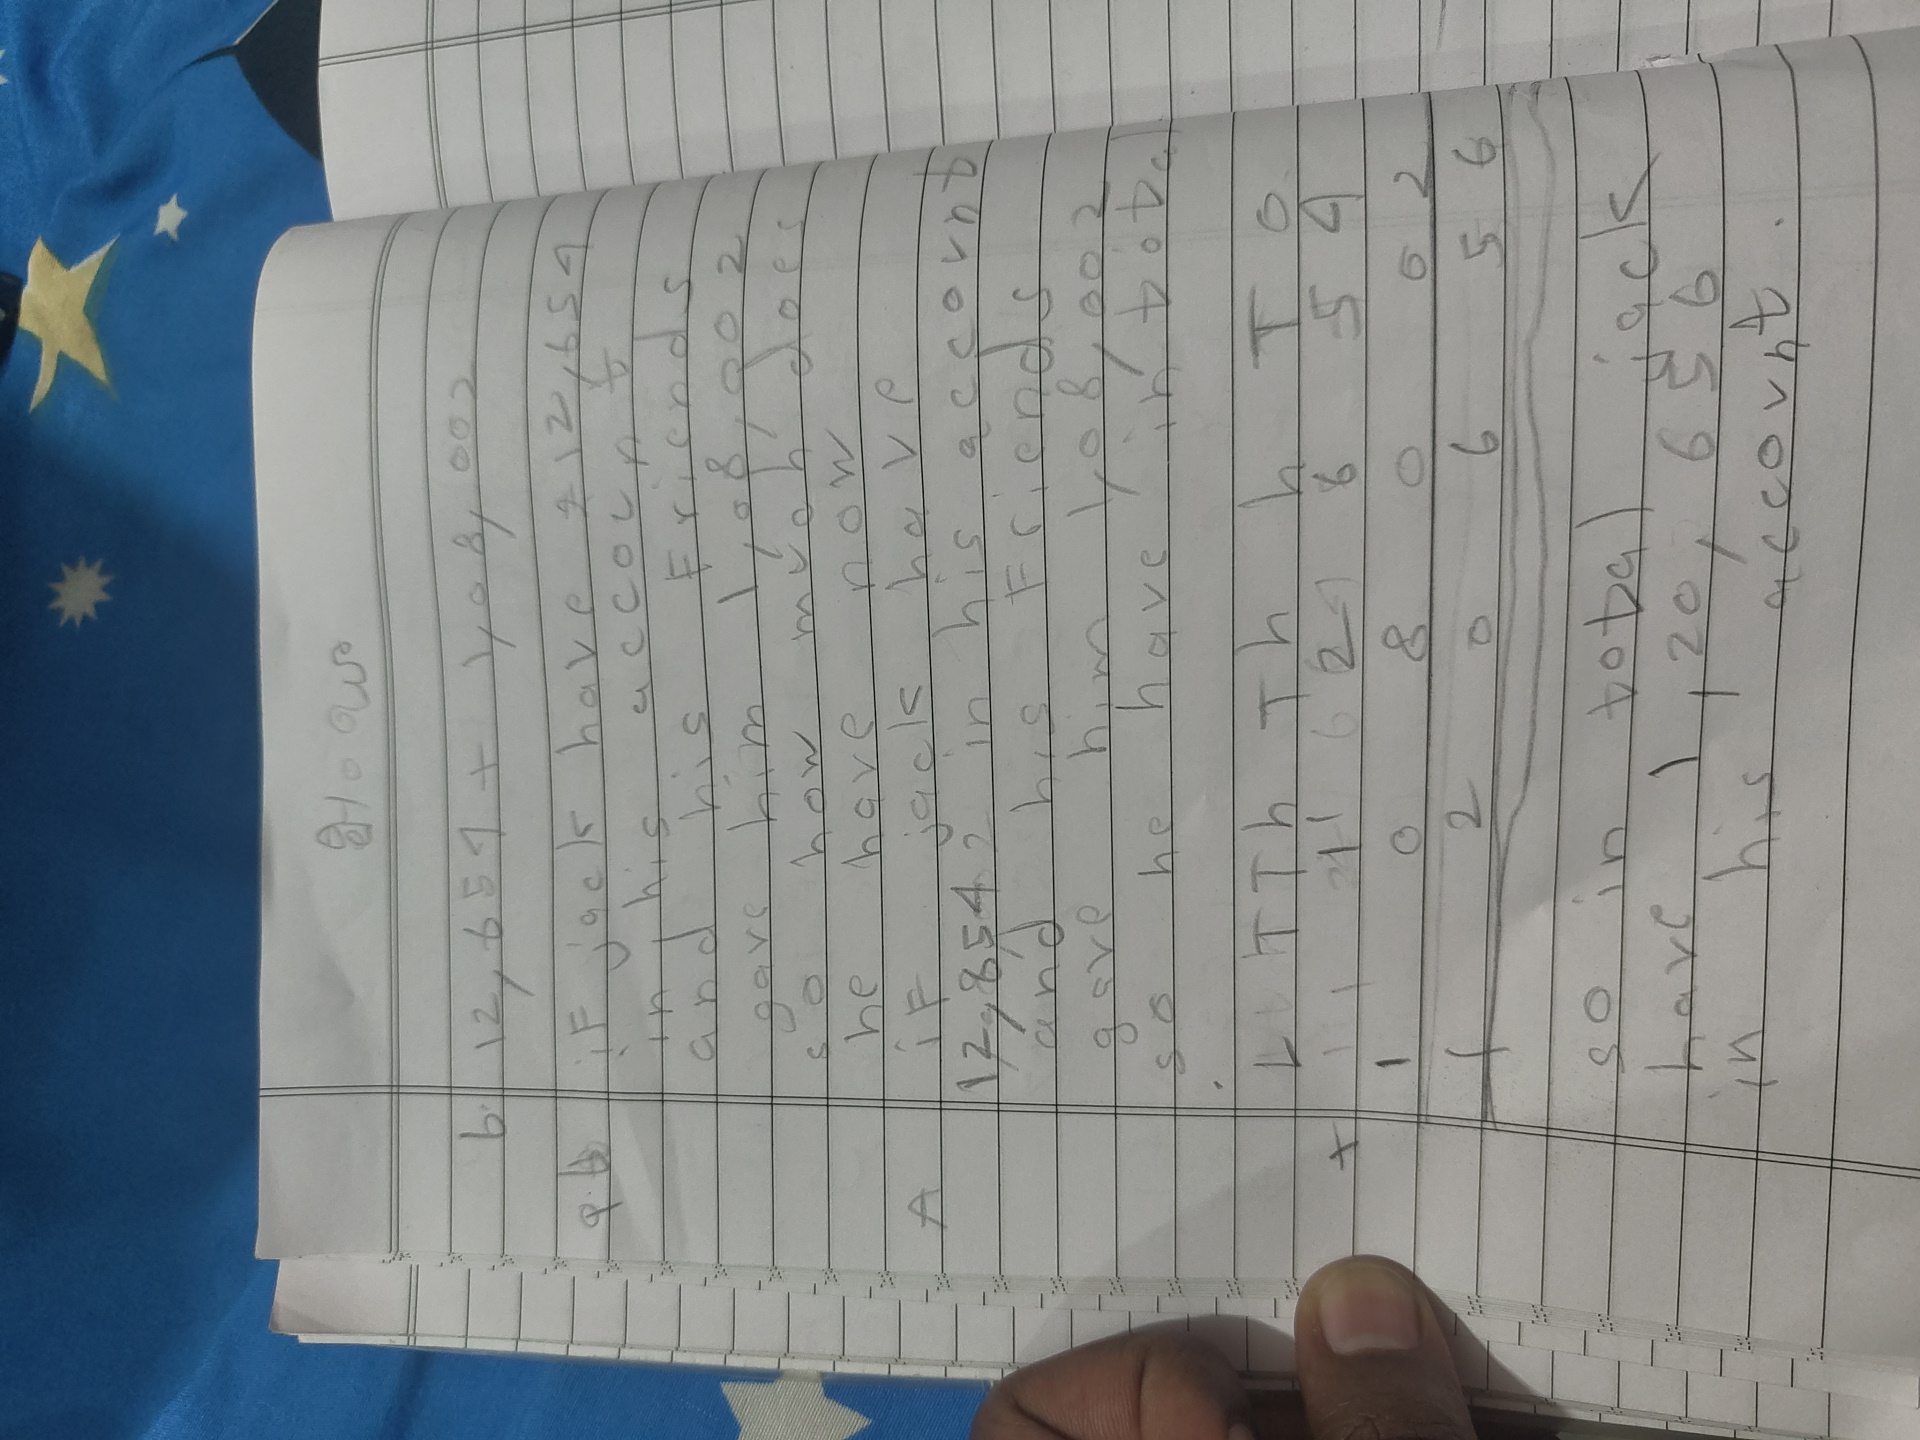 b. 12,654 + 1,08,002
q.b if jack have 12,654
in his account
and his friends
gave him 1,08,002
so how much does
he have now
A if jack have
12,854 in his account
and his friends
gave him 1,08,002
so he have in total
L TTh Th h T O
1 2 6 5 4
+ 1 0 8 0 0 2
1 2 0 6 5 6
so in total jack
have 1,20,656
in his account.